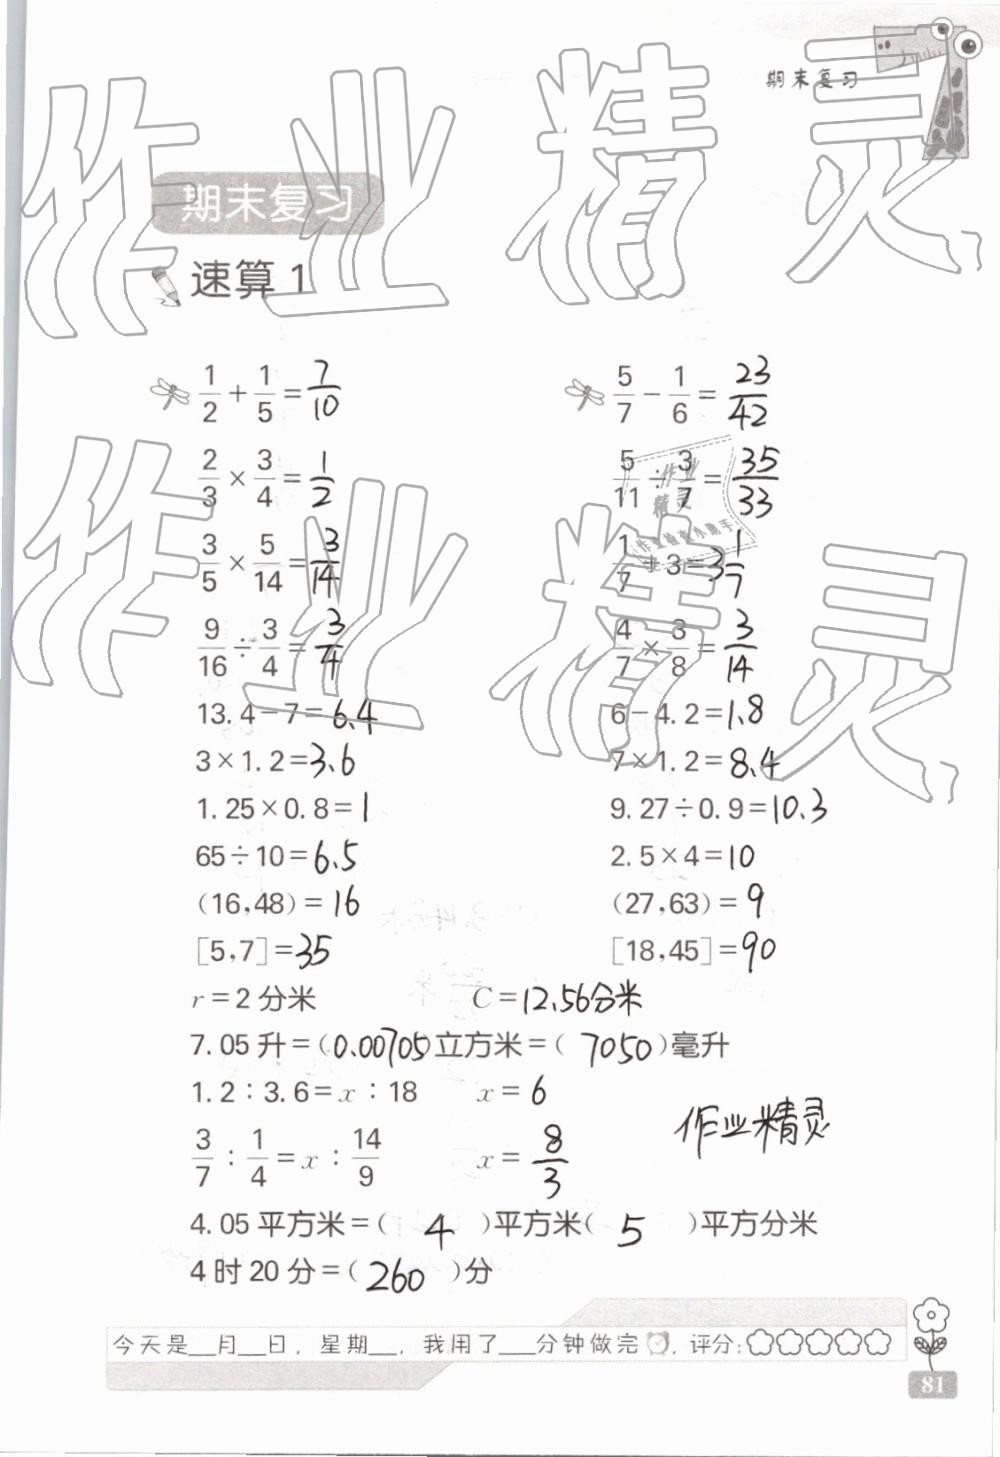 期末复习
作业精灵
期末复习
速算 1
1/2 + 1/5 = 7/10
5/7 - 1/6 = 23/42
2/3 × 3/4 = 1/2
5/11 ÷ 3/7 = 35/33
3/5 × 5/14 = 3/14
1/7 + 3 = 3 1/7
9/16 ÷ 3/4 = 3/4
4/7 × 3/8 = 3/14
13.4 - 7 = 6.4
6 - 4.2 = 1.8
3 × 1.2 = 3.6
7 × 1.2 = 8.4
1.25 × 0.8 = 1
9.27 ÷ 0.9 = 10.3
65 ÷ 10 = 6.5
2.5 × 4 = 10
(16,48) = 16
(27,63) = 9
[5,7] = 35
[18,45] = 90
r = 2 分米 C = 12.56分米
7.05 升 = (0.00705)立方米 = ( 7050 )毫升
1.2 : 3.6 = x : 18 x = 6
3/7 : 1/4 = x : 14/9 x = 8/3
作业精灵
4.05 平方米 = ( 4 )平方米( 5 )平方分米
4 时 20 分 = ( 260 )分
作业精灵
作业
精灵
今天是__月__日，星期__，我用了___分钟做完，评分：
81